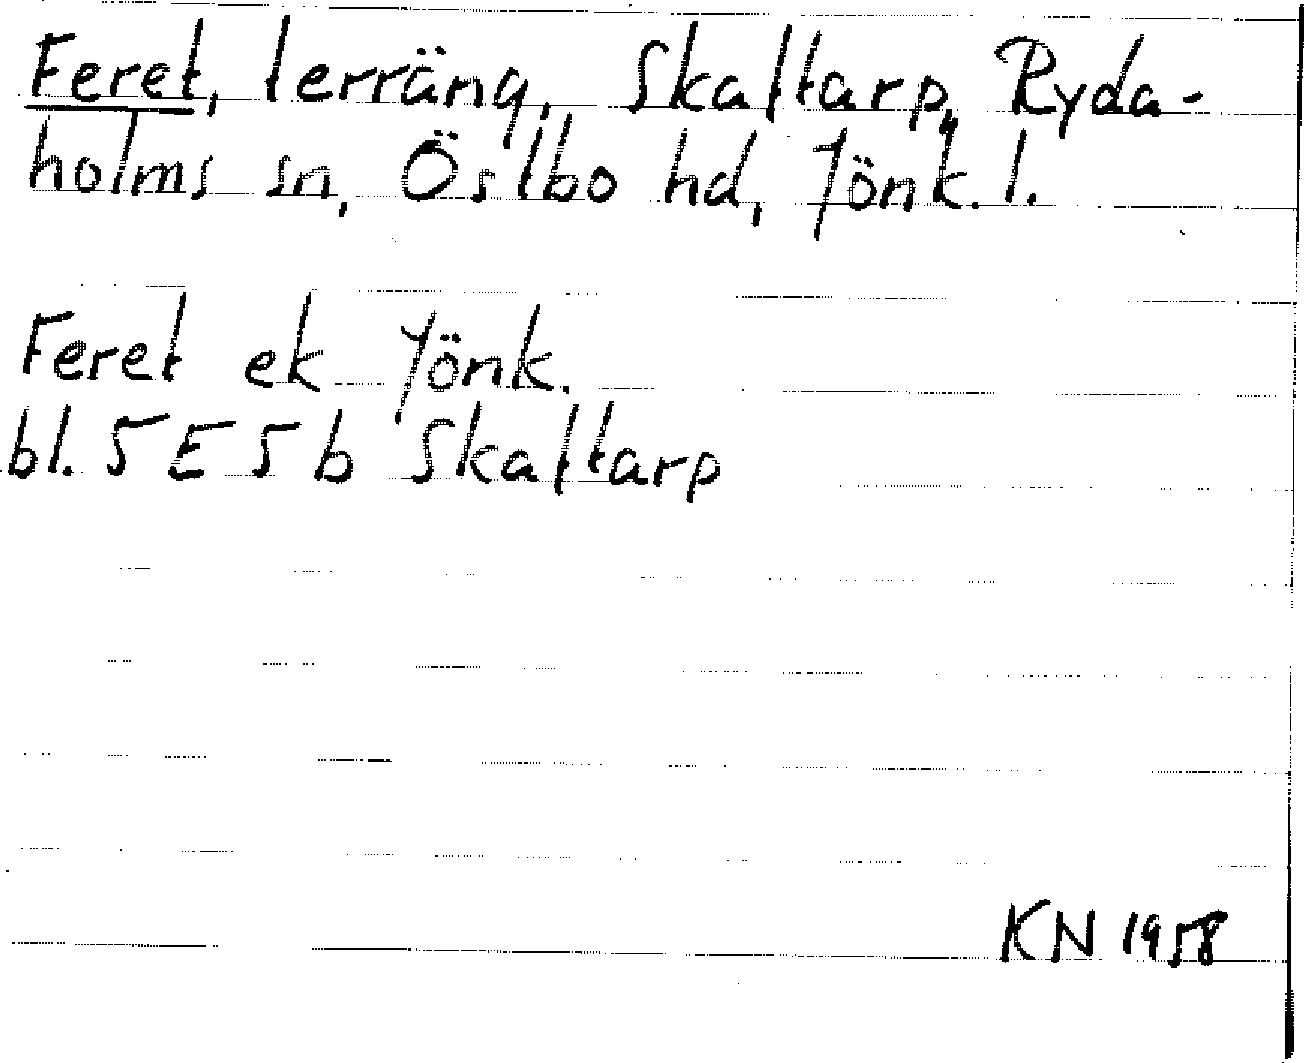 Feret, terräng, Skaltarp, Ryda-
holms sn, Östbo hd, Jönk. l.
Feret ek Jönk.
bl. 5 E 5 b Skaltarp
KN 1958